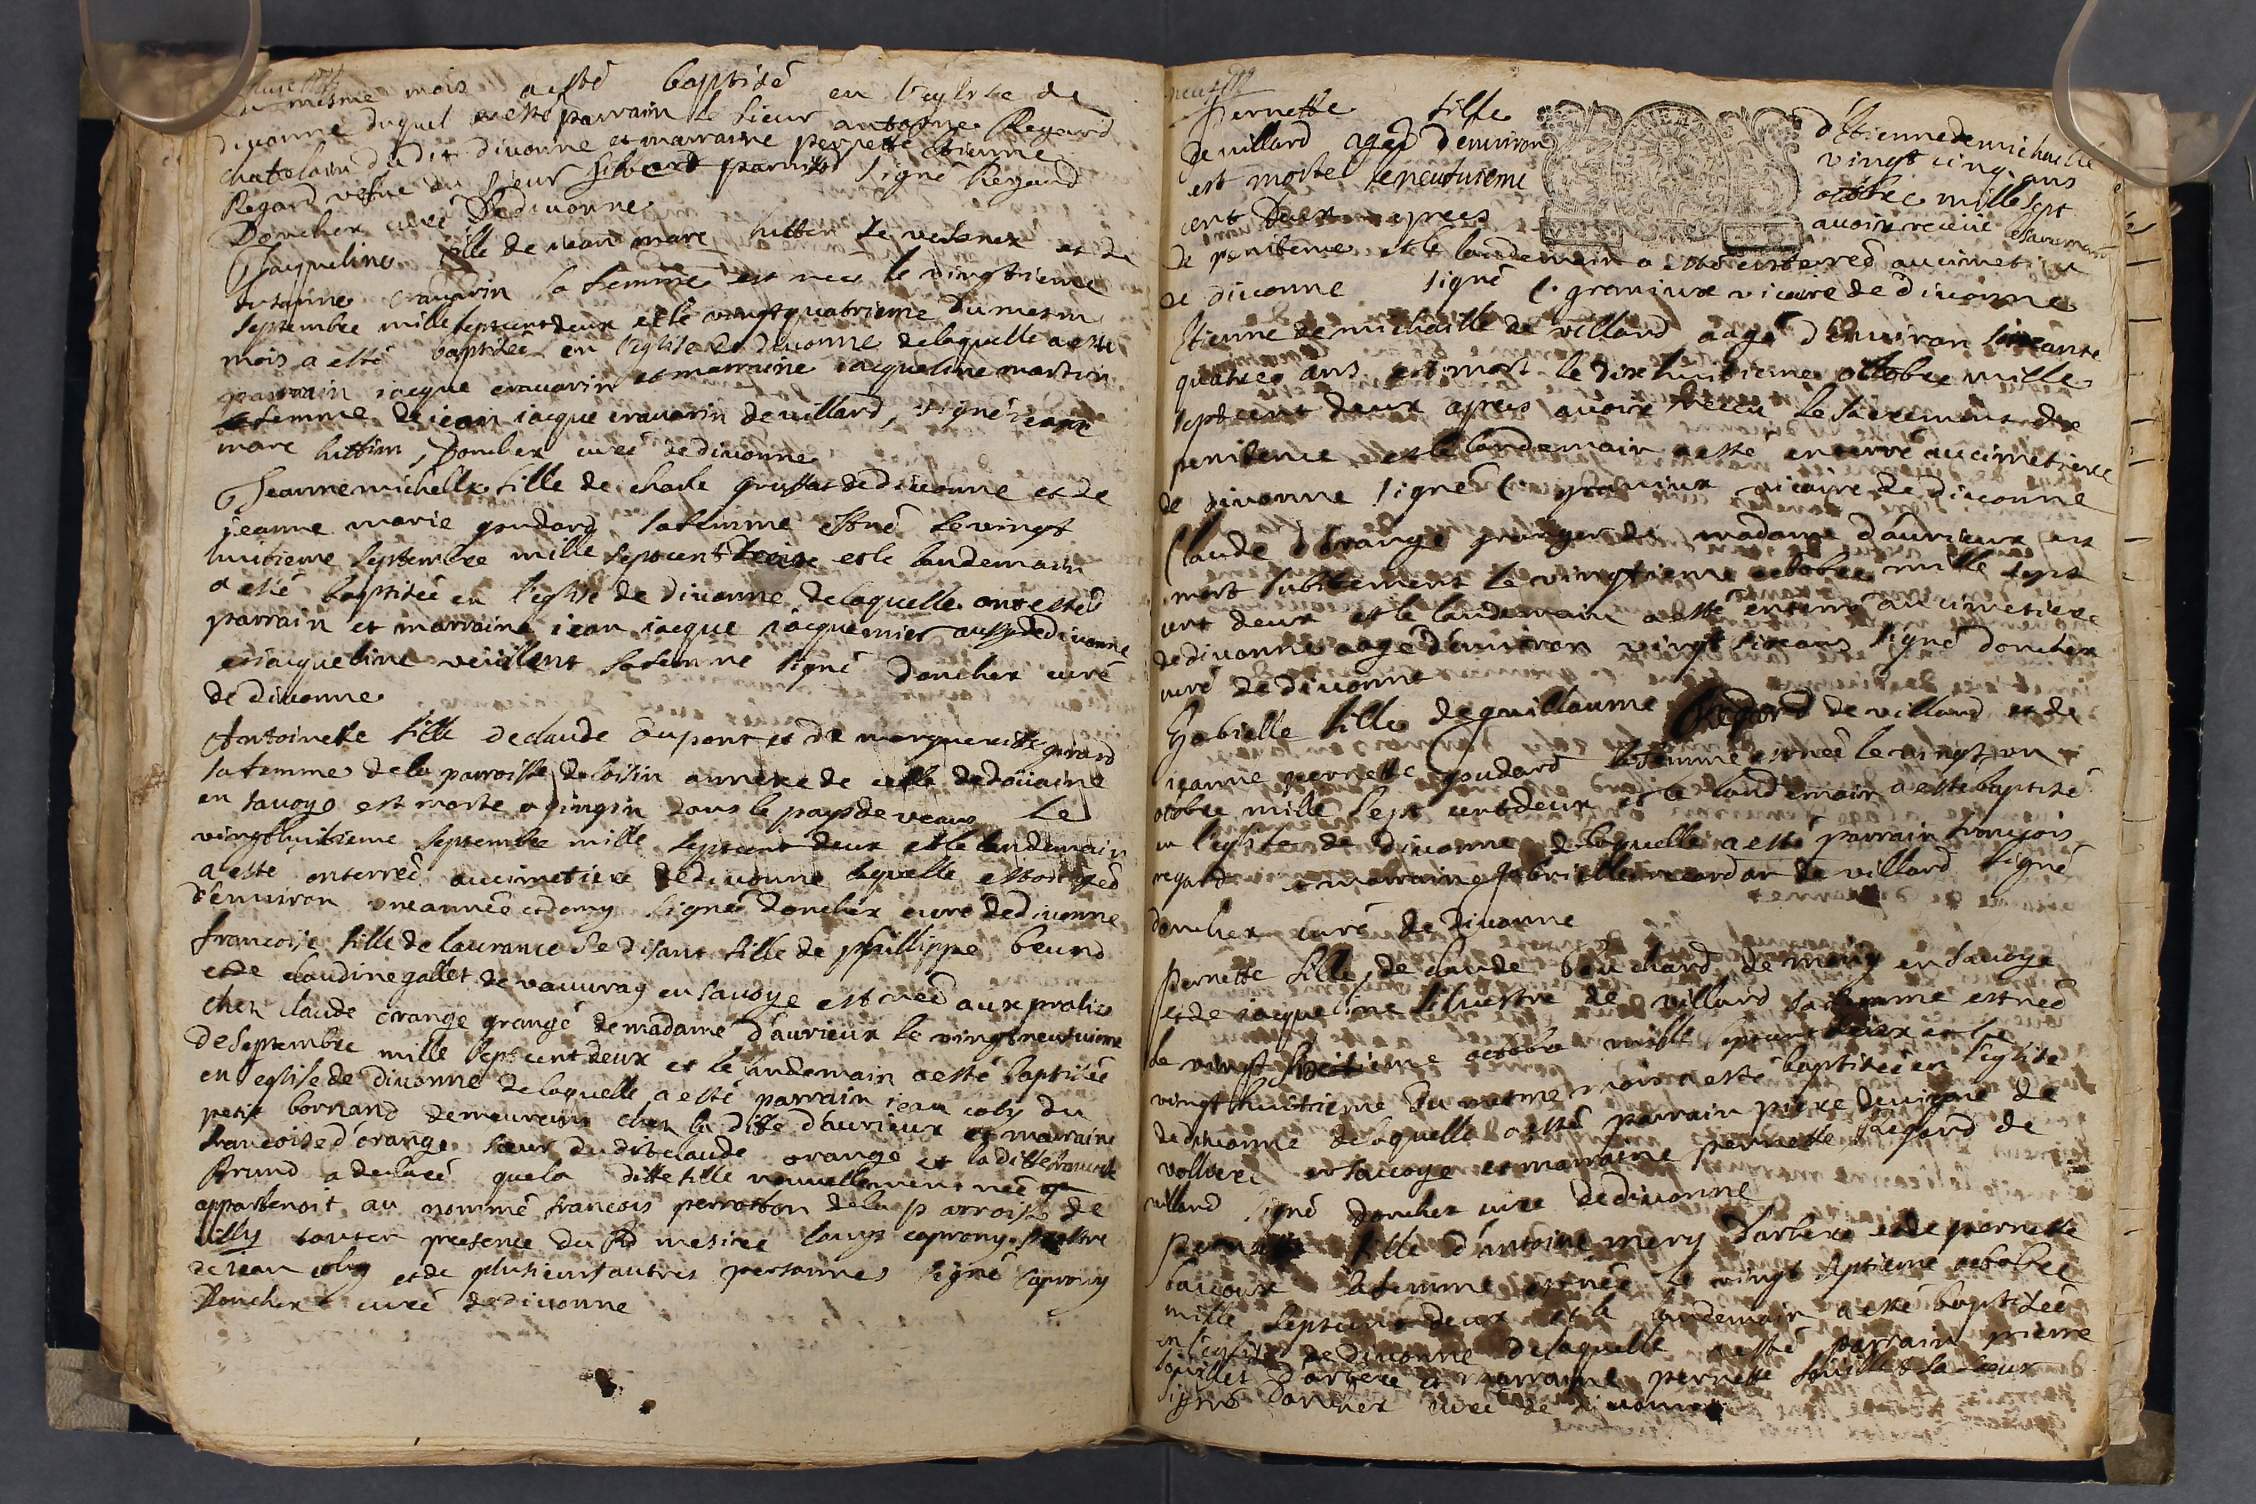 mesme mois a esté baptisé en l'eglise de
divonne duquel a esté parrain le sieur antoine Regard
chatelain dudit divonne et marraine pernette Etienne
Regard vefue du sieur signé Regard
Doncher curé De divonne
Jacqueline fille de Jean marc huttin le et de
Susanne cravarin sa femme est nee le vingtieme
septembre mille septcent deux et le vingt quatrieme du mesm
mois a esté baptisée en l'eglise de divonne de laquelle a esté
parrain jacque cravarin et marraine jacqueline martin
femme de jean jacque cravarin de villard, signé jean
marc huttin, Doncher curé de divonne
Jeanne michelle fille de charle de divonne et de
jeanne marie goudard sa femme est né le vingt
huitieme septembre mille septcent et le landemain
a esté baptisée en l'eglise de divonne de laquelle ont estés
parrain et marraine jean jacque jacquemier aussy de divonne
et jacqueline sa femme signé Doncher curé
de divonne
Antoinette fille de claude Dupont et de marguerite girard
sa femme de la parroisse de loisin annexe de celle de doüaine
en savoye est morte a gingin dans le pays de veaux Le
vingthuitieme septembre mille septcent deux et le landemain
a esté enterreé au cimetiere de divonne laquelle estoit ageé
d'environ une année et demy signé doncher curé de divonne
francoise fille de laurance se disant fille de phillippe beund
et de claudine gallet de vauvray en savoye est neé aux pralies
chez claude orange grangé de madame d'aurieux le vingt neufuieme
de septembre mille septcent deux et le landemain a esté baptiseé
en eglise de divonne de laquelle a esté parrain jean coly du
petit bornand demeurant chez la ditte d'aurieux et marraine
francoise d'orange soeur du dit claude orange et la ditte
a declaré que la ditte fille nouvellement neé
appartenoit au nommé francois perrotton de la parroisse de
villy en presence du Rd mesire louys caprony prestre
de jean coly et de plusieurs autres personnes signé Caprony
Doncher curé de divonne
Pernette fille d'Etienne de michaille
de villard ageé d'environ vingt cinq ans
est morte le neufuieme octobre mille sept
cent Deux apres avoir receüe sacrement
de penitence et le landemain a esté enterreé au cimetier
de divonne signé C. graniux vicaire de divonne
Etienne de michaille de villard aagé d'environ soixante
quatre ans est mort le dix huitieme octobre mille
septcent deux apres avoir receu le sacrement de
penitence et le landemain a esté enterré au cimetiere
de divonne signé C. graniux vicaire de divonne
Claude d'Orange granger de madame d'aurieux est
mort subitement le vingtieme octobre mille sept
cent deux et le landemain a esté enterré au cimetiere
de divonne aagé d'environ vingt six ans signé doncher
curé de divonne
Gabrielle fille de guillaume Regard de villard et de
jeanne pernette goudard sa femme est neé le vingt un
octobre mille sept cent deux et le landemain a esté baptisé
en l'eglise de divonne de laquelle a esté parrain francois
regard et marraine gabrielle recordon de villard signé
doncher curé de divonne
Pernette fille de claude bouchard de en savoye
et de jacqueline silvestre de villard sa femme est neé
le vingt octobre mille septcent deux et le
vingt huitieme du mesme mois a esté baptiseé en l'eglise
de divonne de laquelle a esté parrain piere de
en savoye et marraine pernette Regard de
villard signé doncher curé de divonne
fille d'antoine mery d'arbere et de pernette
sa femme est neé le vingt septieme octobre
mille septcent deux et le landemain a esté baptiseé
en l'eglise de divonne de laquelle a esté parrain pierre
d'arbere et marraine pernette sa soeur
signé Doncher curé de divonne